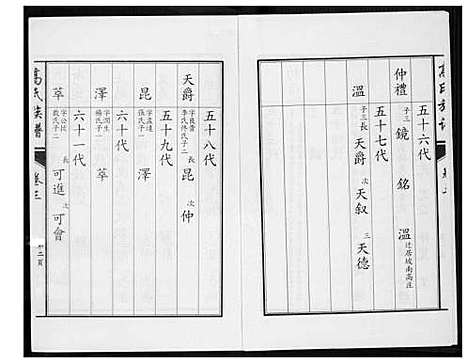 五十六代
仲禮 子三 鏡 銘 溫 迁居城南高庄
五十七代
溫 子三 長 天爵 次 天叙 三 天德
五十八代
天爵 字良貴 李氏佟氏子二 昆 仲
五十九代
昆 字孟達 張氏子 澤
六十代
澤 字潤生 楊氏子 萃
六十一代
萃 字公拔 殷氏子二 長 可進 次 可會
高氏族譜 卷三
十二頁